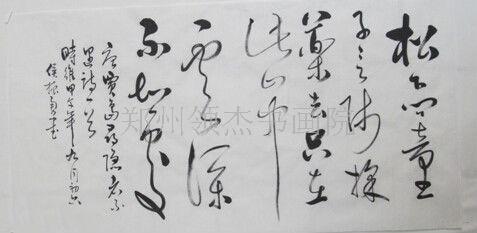 松下问童
子言师采
药去只在
此山中
云深
不知处
唐贾岛寻隐者不
遇诗一首
时维甲午年九月初六
郑州领杰书画院